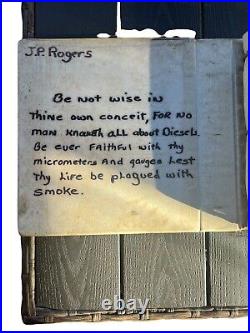 J.P. Rogers
Be Not wise in
Thine own conceit, FOR NO
man knoweth all about Diesels.
Be ever FAithful with thy
micrometers And gauges Lest
Thy Life be plagued with
smoke.